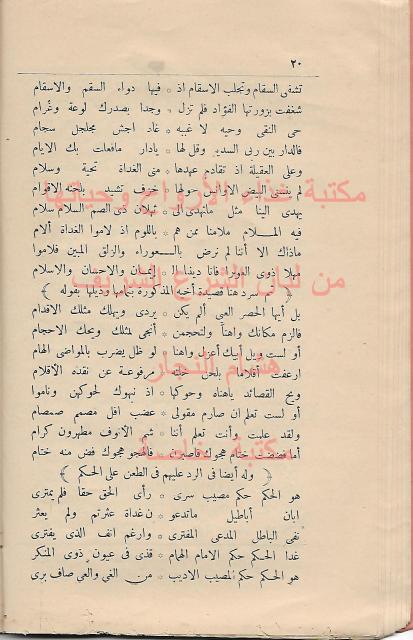 ٢٠
تشفى السقام وتجلب الاسقام اذ * فيها دواء السقم والاسقام
شغفت بزورتها الفؤاد فلم تزل * وجدا بصدرك لوعة وغرام
حى النقى وحيه لا غبه * غاد اجش مجلجل سجام
فالدار بين ربى السدير وقل لها * يادار مافعلت بك الايام
وعلى العقيلة اذ تقادم عهدها * منى الغداة تحية وسلام
لم ينسنى البيض الاوانس حولها * خرف تشيد بلحنه الاقوام
يهدى الينا مثل ماتهدى الى * ذى الصم السلام سلام
فيه المـــلام ملامنا ممن هم * باللوم اذ لاموا الغداة ألام
ماذاك الا أننا لم نرض بالـــعوراء والزلق المبين فلاموا
مهلا ذوى العورا فانا ديننا الـــايمان والاحسان والاسلام
﴿ ثم سرد هنا قصيدة أخيه المذكورة بتمامها وذيلها بقوله ﴾
بل أيها الحصر العيى ألم يكن * يردى ويهلك مثلك الاقدام
فالزم مكانك واهنا ولتحجمن * أنجى لمثلك ويحك الاحجام
أو لست ويل أبيك أعزل واهنا * لو ظل يضرب بالمواضى الهام
ارعفت أقلاما بلحن خلته * مرفوعة عن نقده الاقلام
ويح القصائد ياهناه وحوكها * اذ نبهوك لحوكهن وناموا
أو لست تعلم ان صارم مقولى * عضب افل مصمم صمصام
ولقد علمت وأنت تعلم أننا * شم الانوف مطهرون كرام
أما فضضت ختام هجوك فاصبرن * فالهجو هجوك فض منه ختام
﴿ وله أيضا فى الرد عليهم فى الطعن على الحكم ﴾
هو الحكم حكم مصيب سرى * رأى الحق حقا فلم يمترى
ابان أباطيل ماتدعو * ن غداة عثرتم ولم يعثر
نفى الباطل المدعى المفترى * وارغم انف الذى يفترى
غدا الحكم حكم الامام الهمام * قذى فى عيون ذوى المنكر
هو الحكم حكم المصيب الاديب * من الغى والعى صاف برى
مكتبة غذاء الأرواح وحياتها
من لبان الشرع الشريف
هشام النجار
مكتبة خاصة